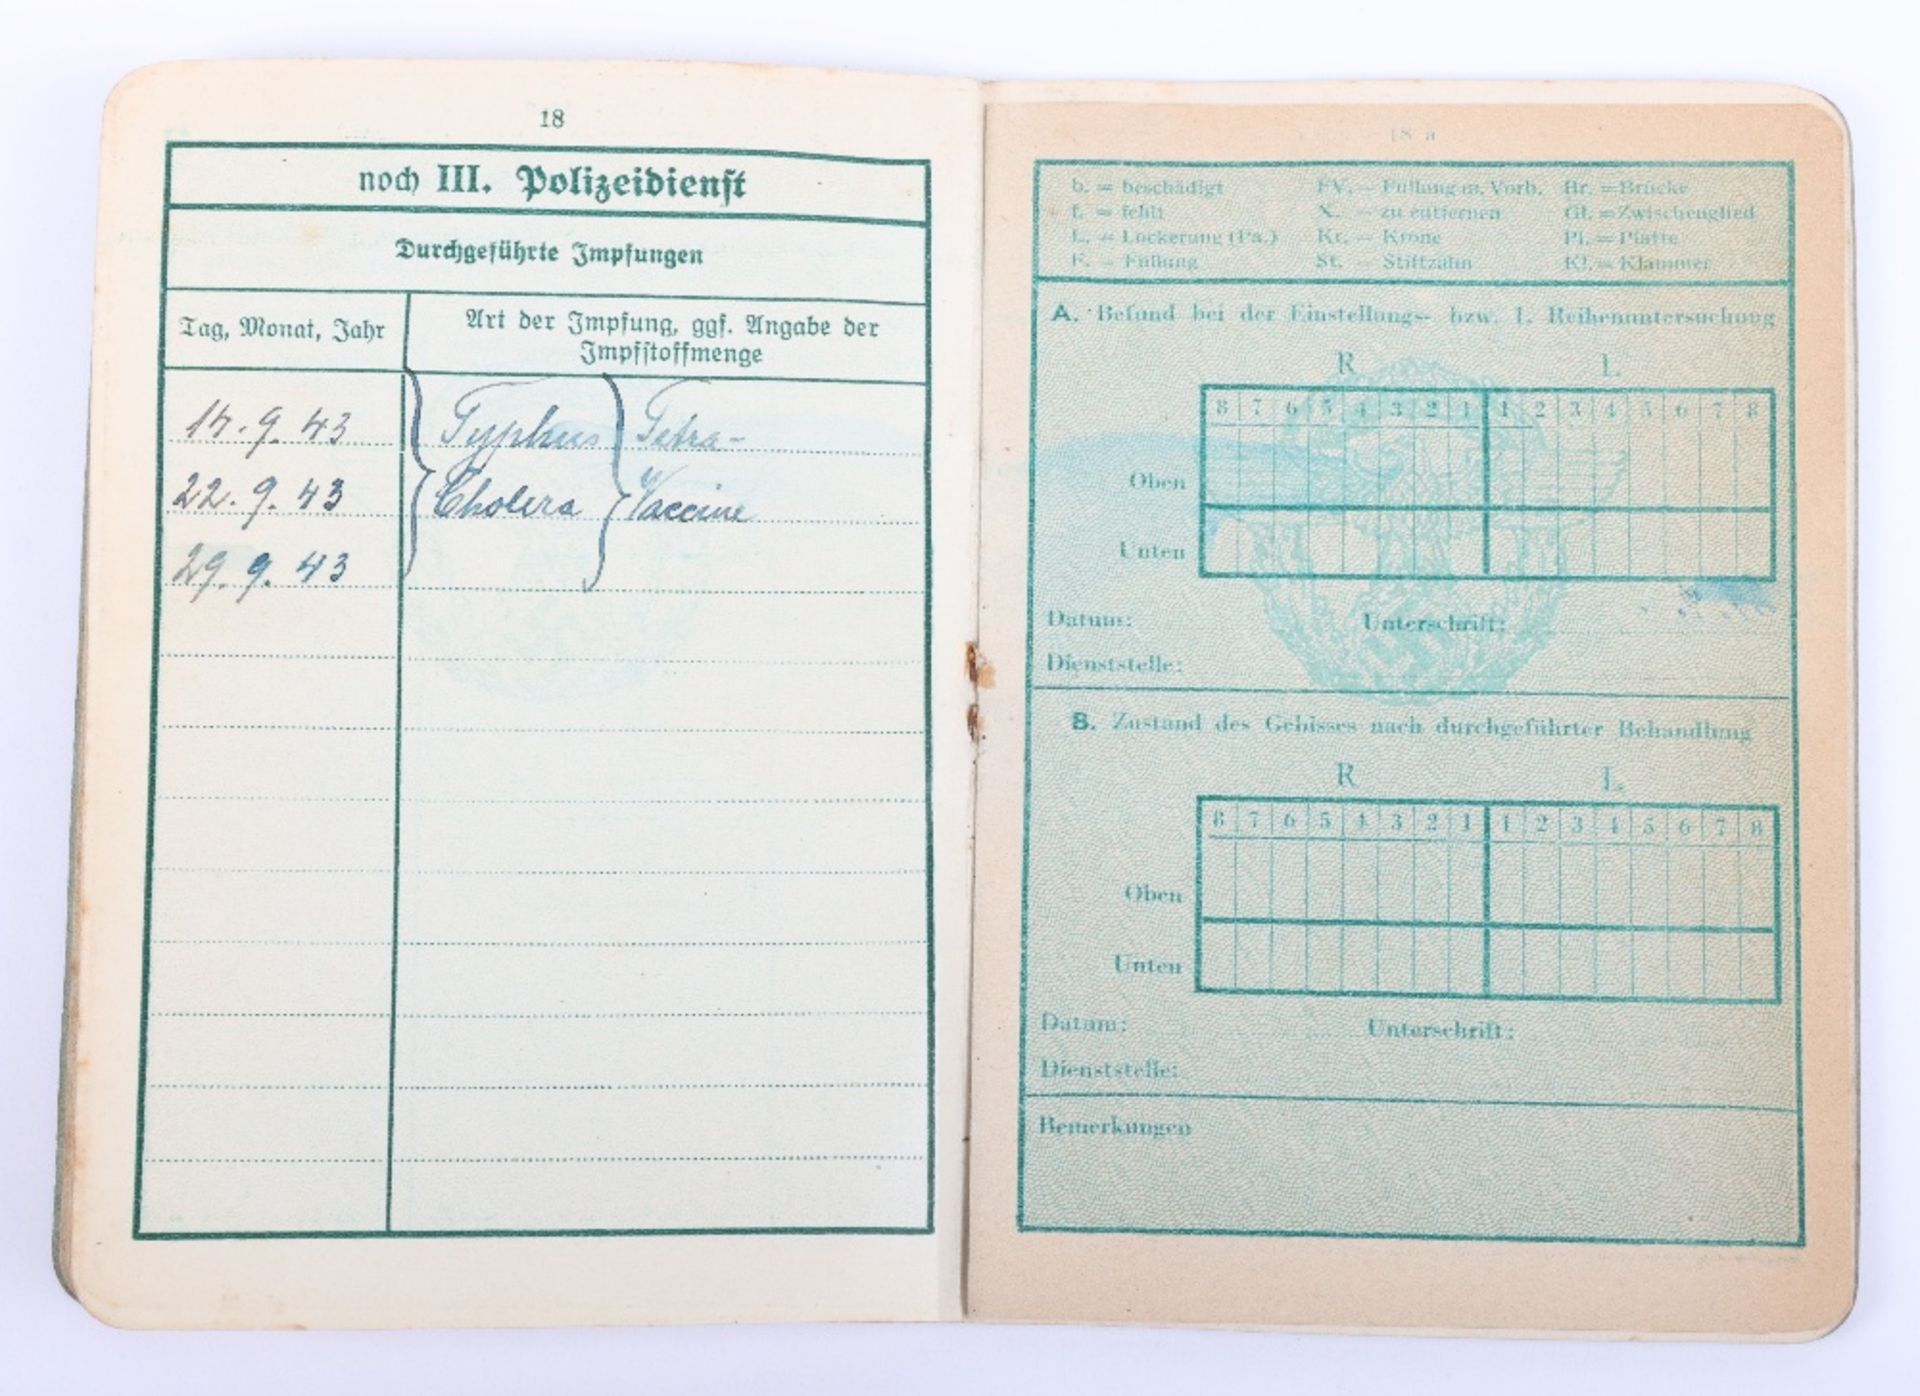 18
noch III. Polizeidienst
Durchgeführte Impfungen
Tag, Monat, Jahr
Art der Impfung, ggf. Angabe der
Impfstoffmenge
14.9.43 Typhus Tetra-
22.9.43 Cholera Vaccine
29.9.43
18 a
b. = beschädigt FV. = Füllung m. Vorb. Br. = Brücke
f. = fehlt X. = zu entfernen Gl. = Zwischenglied
L. = Lockerung (Pa.) Kr. = Krone Pl. = Platte
F. = Füllung St. = Stiftzahn Kl. = Klammer
A. Befund bei der Einstellungs- bzw. 1. Reihenuntersuchung
R L
8 7 6 5 4 3 2 1 1 2 3 4 5 6 7 8
Oben
Unten
Datum: Unterschrift:
Dienststelle:
B. Zustand des Gebisses nach durchgeführter Behandlung
R L
8 7 6 5 4 3 2 1 1 2 3 4 5 6 7 8
Oben
Unten
Datum: Unterschrift:
Dienststelle:
Bemerkungen